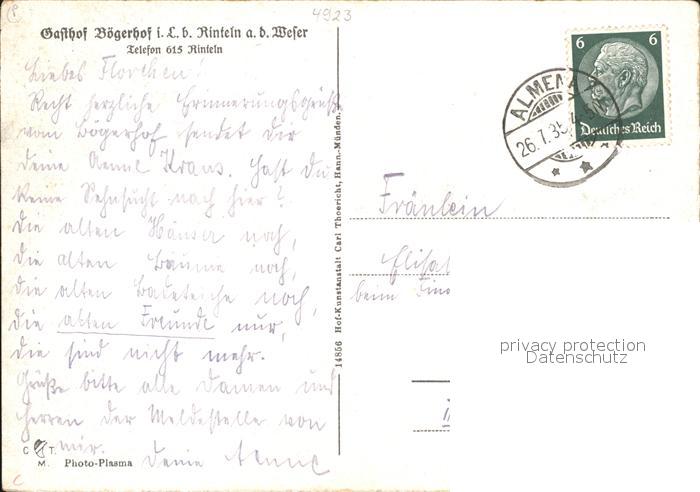 4923
Gasthof Bögerhof i. L. b. Rinteln a. d. Weser
Telefon 615 Rinteln
Liebes Florchen!
Recht herzliche Erinnerungsgrüße
vom Bögerhof sendet dir
deine Aenne Kraus. Hast du
keine Sehnsucht nach hier?
Die alten Häuser noch,
die alten Bäume noch,
die alten Badeteiche noch,
die alten Freunde nur,
die sind nicht mehr.
Grüße bitte alle Damen und
Herren der Meldestelle von
mir.
Deine Aenne
C T.
M. Photo-Plasma
14856 Hof-Kunstanstalt Carl Thoericht, Hann.-Münden.
ALMENA
26.7.35
6 6
Deutsches Reich
Fräulein
Elisa
beim
privacy protection
Datenschutz